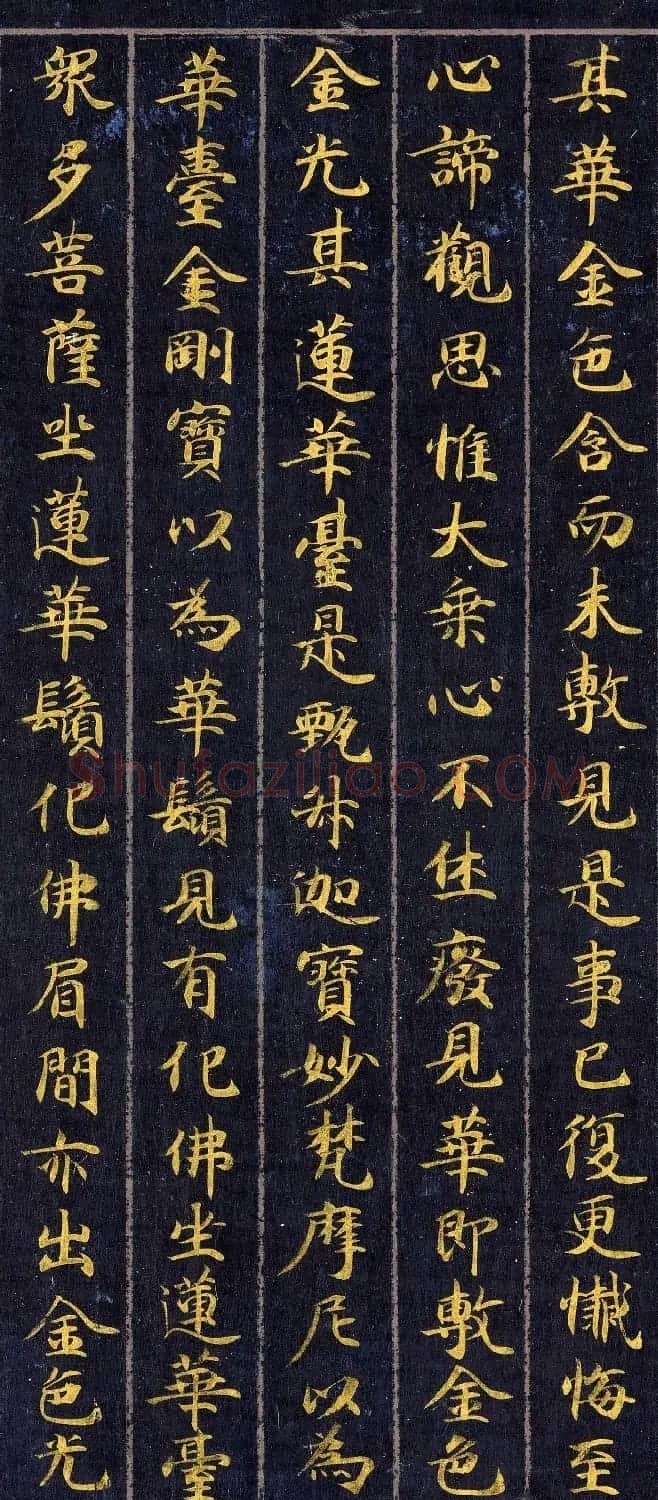 其華金色含而未敷見是事已復更懺悔至
心諦觀思惟大乗心不休廢見華即敷金色
金光其蓮華臺是甄叔伽寶妙梵摩尼以為
華臺金剛寶以為華鬚見有化佛坐蓮華臺
衆多菩薩坐蓮華鬚化佛眉間亦出金色光
Shufaziliao.COM